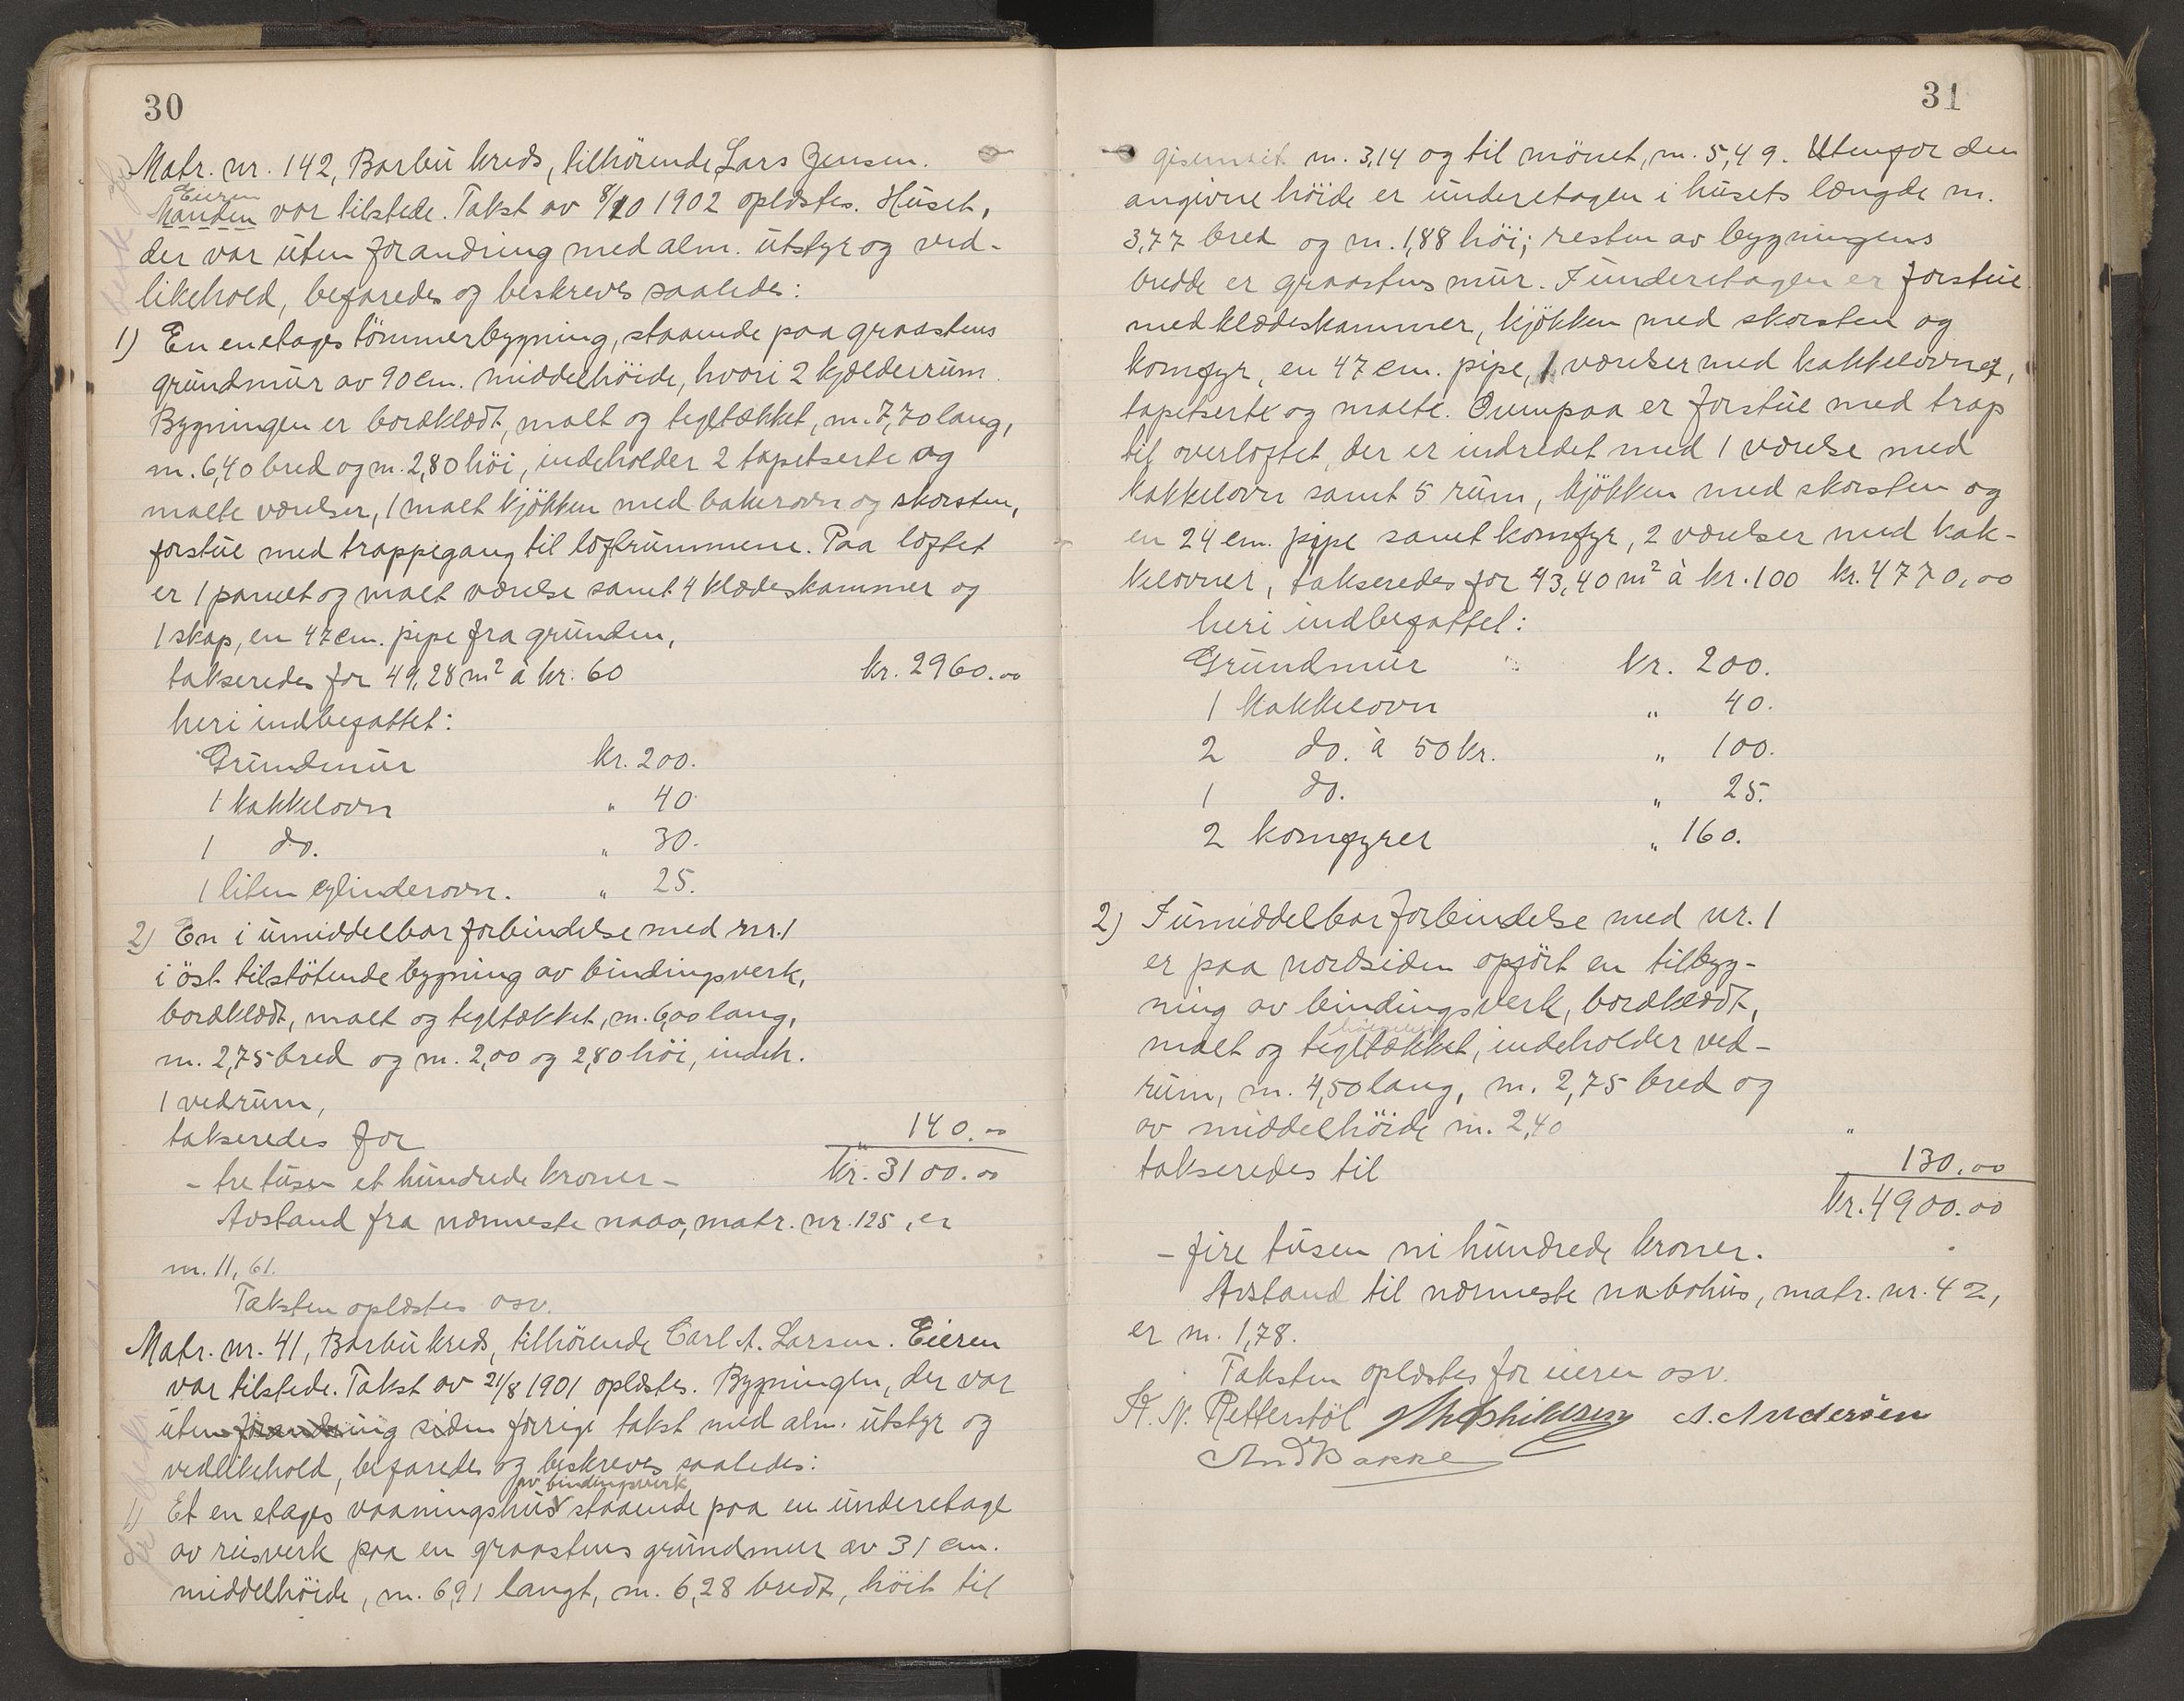 30
Matr. nr. 142, Barbu kreds, tilhörende Lars Jensen.
Eieren
Manden var tilstede. Takst av 8/10 1902 oplæstes. Huset,
der var uten forandring med alm. utstyr og ved-
likehold, befaredes og beskreves saaledes:
1) En enetages tömmerbygning, staaende paa graastens
grundmur av 90 cm. middelhöide, hvori 2 kjælderrum.
Bygningen er bordklædt, malt og tegltækket, m. 7,70 lang,
m. 6,40 bred og m. 2,80 höi, indeholder 2 tapetserte og
malte værelser, 1 malt kjökken med bakerovn og skorsten,
forstue med trappegang til loftrummene. Paa loftet
er 1 panelt og malt værelse samt 4 klædeskammer og
1 skap, en 47 cm. pipe fra grunden,
takseredes for 49,28 m² à kr. 60 kr. 2960.00
heri indbefattet:
Grundmur kr. 200.
1 kakkelovn " 40.
1 do. " 30.
1 liten cylinderovn. " 25.
2) En i umiddelbar forbindelse med nr. 1
i öst tilstötende bygning av bindingsverk,
bordklædt, malt og tegltækket, m. 6,00 lang,
m. 2,75 bred og m. 2,00 og 2,80 höi, indeh.
1 vedrum,
takseredes for " 140.00
- tre tusen et hundrede kroner - kr. 3100.00
Avstand fra nærmeste nabo, matr. nr. 125, er
m. 11,61.
Taksten oplæstes osv.
Matr. nr. 41, Barbu kreds, tilhörende Carl A. Larsen. Eieren
var tilstede. Takst av 21/8 1901 oplæstes. Bygningen, der var
uten forandring siden forrige takst med alm. utstyr og
vedlikehold, befaredes og beskreves saaledes:
av bindingsverk
1) Et en etages vaaningshus staaende paa en underetage
av reisverk paa en graastens grundmur av 31 cm.
middelhöide, m. 6,91 langt, m. 6,28 bredt, höit til
31
gesimsit m. 3,14 og til mönet, m. 5,49. Utenfor den
angivne höide er underetagen i husets længde m.
3,77 bred og m. 1,88 höi; resten av bygningens
bredde er graastens mur. I underetagen er forstue
med klædeskammer, kjökken med skorsten og
komfyr, en 47 cm. pipe, 1 værelser med kakkelovn,
tapetserte og malte. Ovenpaa er forstue med trap
til overloftet, der er indredet med 1 værelse med
kakkelovn samt 5 rum, kjökken med skorsten og
en 24 cm. pipe samt komfyr, 2 værelser med kak-
kelovner, takseredes for 43,40 m² à kr. 100 kr. 4770,00
heri indbefattet:
Grundmur kr. 200.
1 kakkelovn " 40.
2 do. à 50 kr. " 100.
1 do. " 25.
2 komfyrer " 160.
2) I umiddelbar forbindelse med nr. 1
er paa nordsiden opfört en tilbyg-
ning av bindingsverk, bordklædt,
malt og tegltækket, indeholder ved-
rum, m. 4,50 lang, m. 2,75 bred og
av middelhöide m. 2,40 "
takseredes til 130,00
kr. 4900.00
- fire tusen ni hundrede kroner.
Avstand til nærmeste nabohus, matr. nr. 42,
er m. 1,78.
Taksten oplæstes for eieren osv.
K. N. Retterstöl A. Andersen
And Bakke